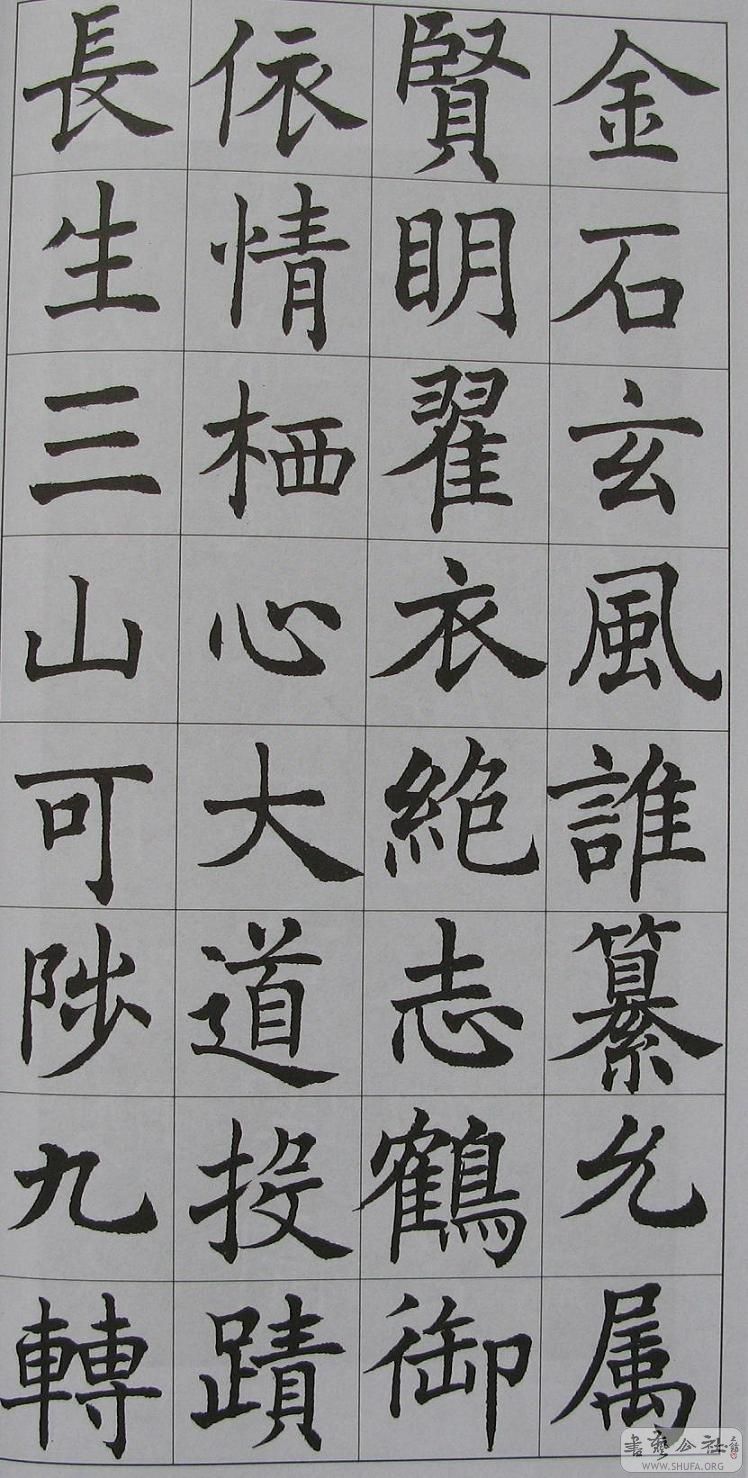 金石玄風誰纂允属
賢明翟衣絶志鶴御
依情栖心大道投蹟
長生三山可陟九轉
書藝公社
WWW.SHUFA.ORG